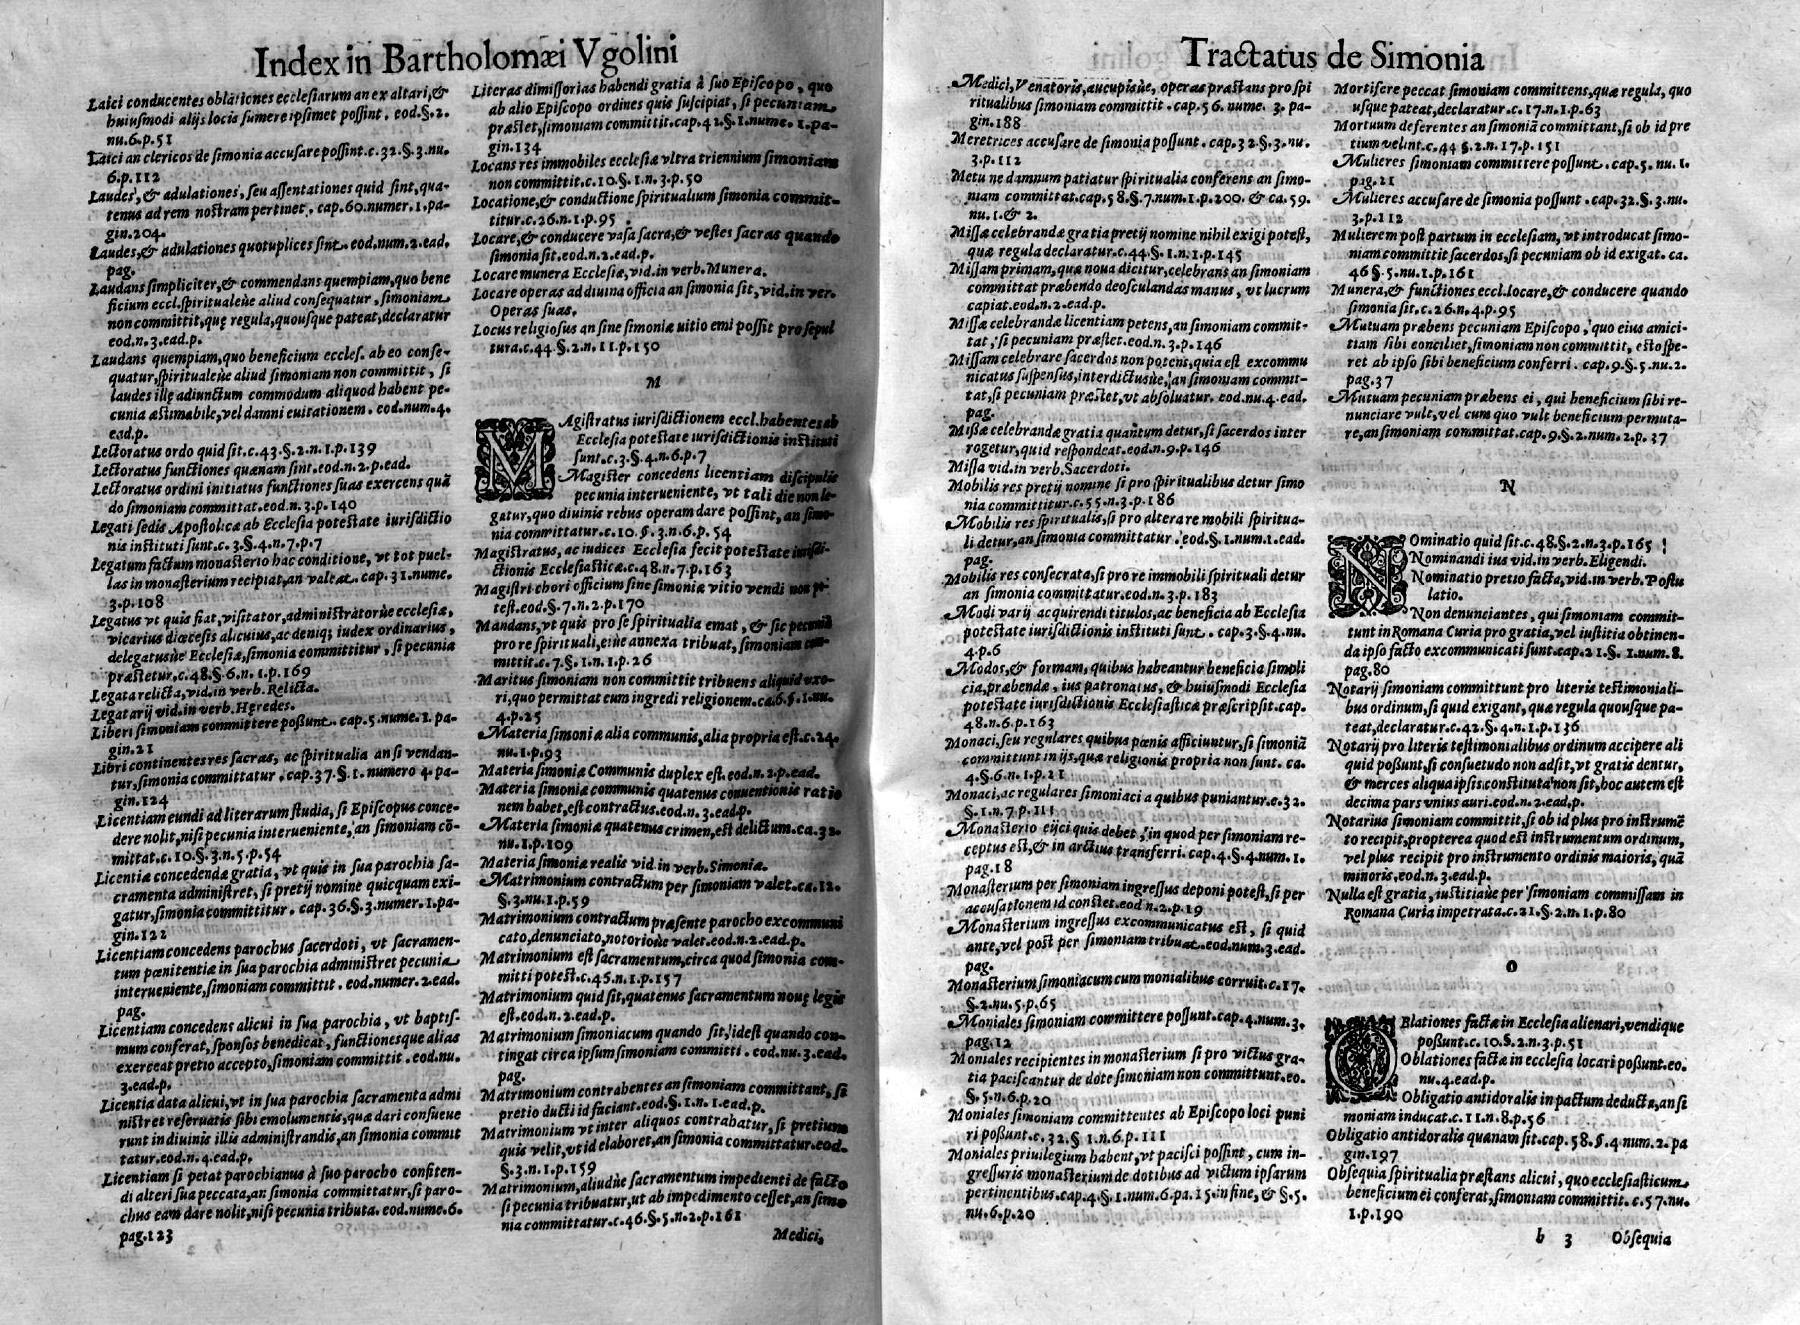 Index in Bartholomæi Vgolini
Laici conducentes oblationes ecclesiarum an ex altari, &
huiusmodi alijs locis sumere ipsimet possint. eod.§.2.
nu.6.p.51
Laici an clericos de simonia accusare possint.c.32.§.3.nu.
6.p.112
Laudes, & adulationes, seu assentationes quid sint, qua-
tenus ad rem nostram pertinet. cap.60.numer.1.pa-
gin.204.
Laudes, & adulationes quotuplices sint. eod.num.2.ead.
pag.
Laudans simpliciter, & commendans quempiam, quo bene
ficium eccl.spiritualeùe aliud consequatur, simoniam
non committit, quę regula, quousque pateat, declaratur
eod.n.3.ead.p.
Laudans quempiam, quo beneficium eccles. ab eo conse-
quatur, spiritualeùe aliud simoniam non committit, si
laudes illę adiunctum commodum aliquod habent pe-
cunia æstimabile, vel damni euitationem. eod.num.4.
ead.p.
Lectoratus ordo quid sit.c.43.§.2.n.1.p.139
Lectoratus functiones quænam sint.eod.n.2.p.ead.
Lectoratus ordini initiatus functiones suas exercens quã
do simoniam committat.eod.n.3.p.140
Legati sedis Apostolicæ ab Ecclesia potestate iurisdictio
nis instituti sunt.c.3.§.4.n.7.p.7
Legatum factum monasterio hac conditione, vt tot puel-
las in monasterium recipiat, an valeat. cap.31.nume.
3.p.108
Legatus vt quis fiat, visitator, administratorùe ecclesiæ,
vicarius diœcesis alicuius, ac deniq; iudex ordinarius,
delegatusùe Ecclesiæ, simonia committitur, si pecunia
præstetur.c.48.§.6.n.1.p.169
Legata relicta, vid.in verb.Relicta.
Legatarij vid.in verb.Hęredes.
Liberi simoniam committere possunt. cap.5.nume.1.pa-
gin.21
Libri continentes res sacras, ac spiritualia an si vendan-
tur, simonia committatur. cap.37.§.1.numero 4.pa-
gin.124
Licentiam eundi ad literarum studia, si Episcopus conce-
dere nolit, nisi pecunia interueniente, an simoniam cõ-
mittat.c.10.§.3.n.5.p.54
Licentiæ concedendæ gratia, vt quis in sua parochia sa-
cramenta administret, si pretij nomine quicquam exi-
gatur, simonia committitur. cap.36.§.3.numer.1.pa-
gin.122
Licentiam concedens parochus sacerdoti, vt sacramen-
tum pœnitentiæ in sua parochia administret pecunia
interueniente, simoniam committit. eod.numer.2.ead.
pag.
Licentiam concedens alicui in sua parochia, vt baptis-
mum conferat, sponsos benedicat, functionesque alias
exerceat pretio accepto, simoniam committit. eod.nu.
3.ead.p.
Licentia data alicui, vt in sua parochia sacramenta admi
nistret reseruatis sibi emolumentis, quæ dari consueue
runt in diuinis illis administrandis, an simonia commit
tatur.eod.n.4.ead.p.
Licentiam si petat parochianus à suo parocho confiten-
di alteri sua peccata, an simonia committatur, si paro-
chus eam dare nolit, nisi pecunia tributa. eod.nume.6.
pag.123
Literas dimissorias habendi gratia à suo Episcopo, quo
ab alio Episcopo ordines quis suscipiat, si pecuniam
præstet, simoniam committit.cap.42.§.1.nume.1.pa-
gin.134
Locans res immobiles ecclesiæ vltra triennium simoniam
non committit.c.10.§.1.n.3.p.50
Locatione, & conductione spiritualium simonia commit-
titur.c.26.n.1.p.95
Locare, & conducere vasa sacra, & vestes sacras quando
simonia sit.eod.n.2.ead.p.
Locare munera Ecclesiæ, vid.in verb.Munera.
Locare operas ad diuina officia an simonia sit, vid.in ver.
Operas suas.
Locus religiosus an sine simoniæ uitio emi possit pro sepul
tura.c.44.§.2.n.11.p.150
M
MAgistratus iurisdictionem eccl.habentes ab
Ecclesia potestate iurisdictionis instituti
sunt.c.3.§.4.n.6.p.7
Magister concedens licentiam discipulis
pecunia interueniente, vt tali die non le-
gatur, quo diuinis rebus operam dare possint, an simo-
nia committatur.c.10.§.3.n.6.p.54
Magistratus, ac iudices Ecclesia fecit potestate iurisdi-
ctionis Ecclesiasticæ.c.48.n.7.p.163
Magistri chori officium sine simoniæ vitio vendi non po-
test.eod.§.7.n.2.p.170
Mandans, vt quis pro se spiritualia emat, & sic pecuniã
pro re spirituali, eiùe annexa tribuat, simoniam com-
mittit.c.7.§.1.n.1.p.26
Maritus simoniam non committit tribuens aliquid vxo-
ri, quo permittat eum ingredi religionem.ca.6.§.1.nu.
4.p.25
Materia simoniæ alia communis, alia propria est.c.24.
nu.1.p.93
Materia simoniæ Communis duplex est.eod.n.2.p.ead.
Materia simoniæ communis quatenus conuentionis ratio
nem habet, est contractus.eod.n.3.ead.p.
Materia simoniæ quatenus crimen, est delictum.ca.32.
nu.1.p.109
Materia simoniæ realis vid.in verb.Simonia.
Matrimonium contractum per simoniam valet.ca.12.
§.3.nu.1.p.59
Matrimonium contractum præsente parocho excommuni
cato, denunciato, notorioùe valet.eod.n.2.ead.p.
Matrimonium est sacramentum, circa quod simonia com-
mitti potest.c.46.n.1.p.157
Matrimonium quid sit, quatenus sacramentum nouę legis
est.eod.n.2.ead.p.
Matrimonium simoniacum quando sit, idest quando con-
tingat circa ipsum simoniam committi. eod.nu.3.ead.
pag.
Matrimonium contrahentes an simoniam committant, si
pretio ducti id faciant.eod.§.1.n.1.ead.p.
Matrimonium vt inter aliquos contrahatur, si pretium
quis velit, vt id elaboret, an simonia committatur.eod.
§.3.n.1.p.159
Matrimonium, aliudùe sacramentum impedienti de facto
si pecunia tribuatur, ut ab impedimento cesset, an simo
nia committatur.c.46.§.5.n.2.p.161
Medici,
Tractatus de Simonia
Medici, Venatoris, aucupisùe, operas præstans pro spi
ritualibus simoniam committit. cap.56. nume. 3. pa-
gin.188
Meretrices accusare de simonia possunt. cap.32.§.3.nu.
3.p.112
Metu ne damnum patiatur spiritualia conferens an simo-
niam committat.cap.58.§.7.num.1.p.200. & ca.59.
nu.1.& 2.
Missæ celebrandæ gratia pretij nomine nihil exigi potest,
quæ regula declaratur.c.44.§.1.n.1.p.145
Missam primam, quæ noua dicitur, celebrans an simoniam
committat præbendo deosculandas manus, vt lucrum
capiat.eod.n.2.ead.p.
Missæ celebrandæ licentiam petens, an simoniam commit-
tat, si pecuniam præstet.eod.n.3.p.146
Missam celebrare sacerdos non potens, quia est excommu
nicatus suspensus, interdictusùe, an simoniam commit-
tat, si pecuniam præstet, vt absoluatur. eod.nu.4.ead.
pag.
Missæ celebrandæ gratia quantum detur, si sacerdos inter
rogetur, quid respondeat.eod.n.9.p.146
Missa vid.in verb.Sacerdoti.
Mobilis res pretij nomine si pro spiritualibus detur simo
nia committitur.c.55.n.3.p.186
Mobilis res spiritualis, si pro altera re mobili spiritua-
li detur, an simonia committatur. eod.§.1.num.1.ead.
pag.
Mobilis res consecrata, si pro re immobili spirituali detur
an simonia committatur.eod.n.3.p.183
Modi varij acquirendi titulos, ac beneficia ab Ecclesia
potestate iurisdictionis instituti sunt. cap.3.§.4.nu.
4.p.6
Modos, & formam, quibus habeantur beneficia simpli
cia, præbendæ, ius patronatus, & huiusmodi Ecclesia
potestate iurisdictionis Ecclesiasticæ præscripsit.cap.
48.n.6.p.163
Monaci, seu regulares quibus pœnis afficiuntur, si simoniã
committunt in ijs, quæ religionis propria non sunt. ca.
4.§.6.n.1.p.21
Monaci, ac regulares simoniaci a quibus puniantur.c.32.
§.1.n.7.p.111
Monasterio eijci quis debet, in quod per simoniam re-
ceptus est, & in arctius transferri. cap.4.§.4.num.1.
pag.18
Monasterium per simoniam ingressus deponi potest, si per
accusationem id constet.eod n.2.p.19
Monasterium ingressus excommunicatus est, si quid
ante, vel post per simoniam tribuat.eod.num.3.ead.
pag.
Monasterium simoniacum cum monialibus corruit.c.17.
§.2.nu.5.p.65
Moniales simoniam committere possunt.cap.4.num.3.
pag.12
Moniales recipientes in monasterium si pro victus gra-
tia paciscantur de dote simoniam non committunt.eo.
§.5.n.6.p.20
Moniales simoniam committentes ab Episcopo loci puni
ri possunt.c.32.§ 1.n.6.p.111
Moniales priuilegium habent, vt pacisci possint, cum in-
gressuris monasterium de dotibus ad victum ipsarum
pertinentibus.cap.4.§.1.num.6.pa.15.in fine, & §.5.
nu.6.p.20
Mortifere peccat simoniam committens, quæ regula, quo
usque pateat, declaratur.c.17.n.1.p.63
Mortuum deferentes an simoniã committant, si ob id pre
tium velint.c.44 §.2.n.17.p.151
Mulieres simoniam committere possunt. cap.5. nu.1.
pag.21
Mulieres accusare de simonia possunt. cap.32.§.3.nu.
3.p.112
Mulierem post partum in ecclesiam, vt introducat simo-
niam committit sacerdos, si pecuniam ob id exigat. ca.
46 §.5.nu.1.p.161
Munera, & functiones eccl.locare, & conducere quando
simonia sit.c.26.n.4.p.95
Mutuam præbens pecuniam Episcopo, quo eius amici-
tiam sibi conciliet, simoniam non committit, esto spe-
ret ab ipso sibi beneficium conferri. cap.9.§.5.nu.2.
pag.37
Mutuam pecuniam præbens ei, qui beneficium sibi re-
nunciare vult, vel cum quo vult beneficium permuta-
re, an simoniam committat.cap.9.§.2.num.2.p.37
N
NOminatio quid sit.c.48.§.2.n.3.p.165
Nominandi ius vid.in verb.Eligendi.
Nominatio pretio facta, vid.in verb.Postu
latio.
Non denunciantes, qui simoniam commit-
tunt in Romana Curia pro gratia, vel iustitia obtinen-
da ipso facto excommunicati sunt.cap.21.§.1.num.8.
pag.80
Notarij simoniam committunt pro literis testimoniali-
bus ordinum, si quid exigant, quæ regula quousque pa-
teat, declaratur.c.42.§.4.n.1.p.136
Notarij pro literis testimonialibus ordinum accipere ali
quid possunt, si consuetudo non adsit, vt gratis dentur,
& merces aliqua ipsis constituta non sit, hoc autem est
decima pars vnius auri.eod.n.2.ead.p.
Notarius simoniam committit, si ob id plus pro instrumẽ
to recipit, propterea quod est instrumentum ordinum,
vel plus recipit pro instrumento ordinis maioris, quã
minoris, eod.n.3.ead.p.
Nulla est gratia, iustitiaùe per simoniam commissam in
Romana Curia impetrata.c.21.§.2.n.1.p.80
O
OBlationes factæ in Ecclesia alienari, vendique
possunt.c.10.§.2.n.3.p.51
Oblationes factæ in ecclesia locari possunt.eo.
nu.4.ead.p.
Obligatio antidoralis in pactum deducta, an si
moniam inducat.c.11.n.8.p.56
Obligatio antidoralis quænam sit.cap.58.§.4.num.2.pa
gin.197
Obsequia spiritualia præstans alicui, quo ecclesiasticum
beneficium ei conferat, simoniam committit. c.57.nu.
1.p.190
b 3 Obsequia